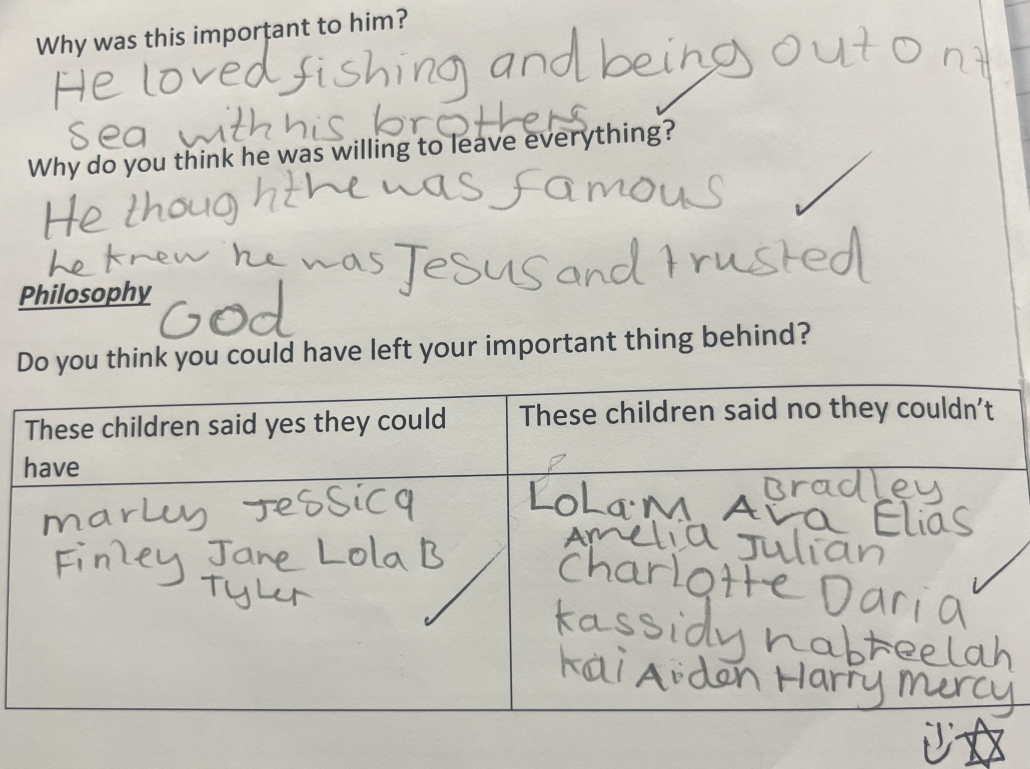 Why was this important to him?
He loved fishing and being out on t
sea with his brothers
Why do you think he was willing to leave everything?
He thoughht he was famous
he knew he was Jesus and trusted
Philosophy
God
Do you think you could have left your important thing behind?
These children said yes they could
have
These children said no they couldn't
marley Jessica
Finley Jane Lola B
Tyler
Bradley
Lola.M Ava Elias
Amelia Julian
Charlotte Daria
kassidy nabteelah
kai Aiden Harry mercy